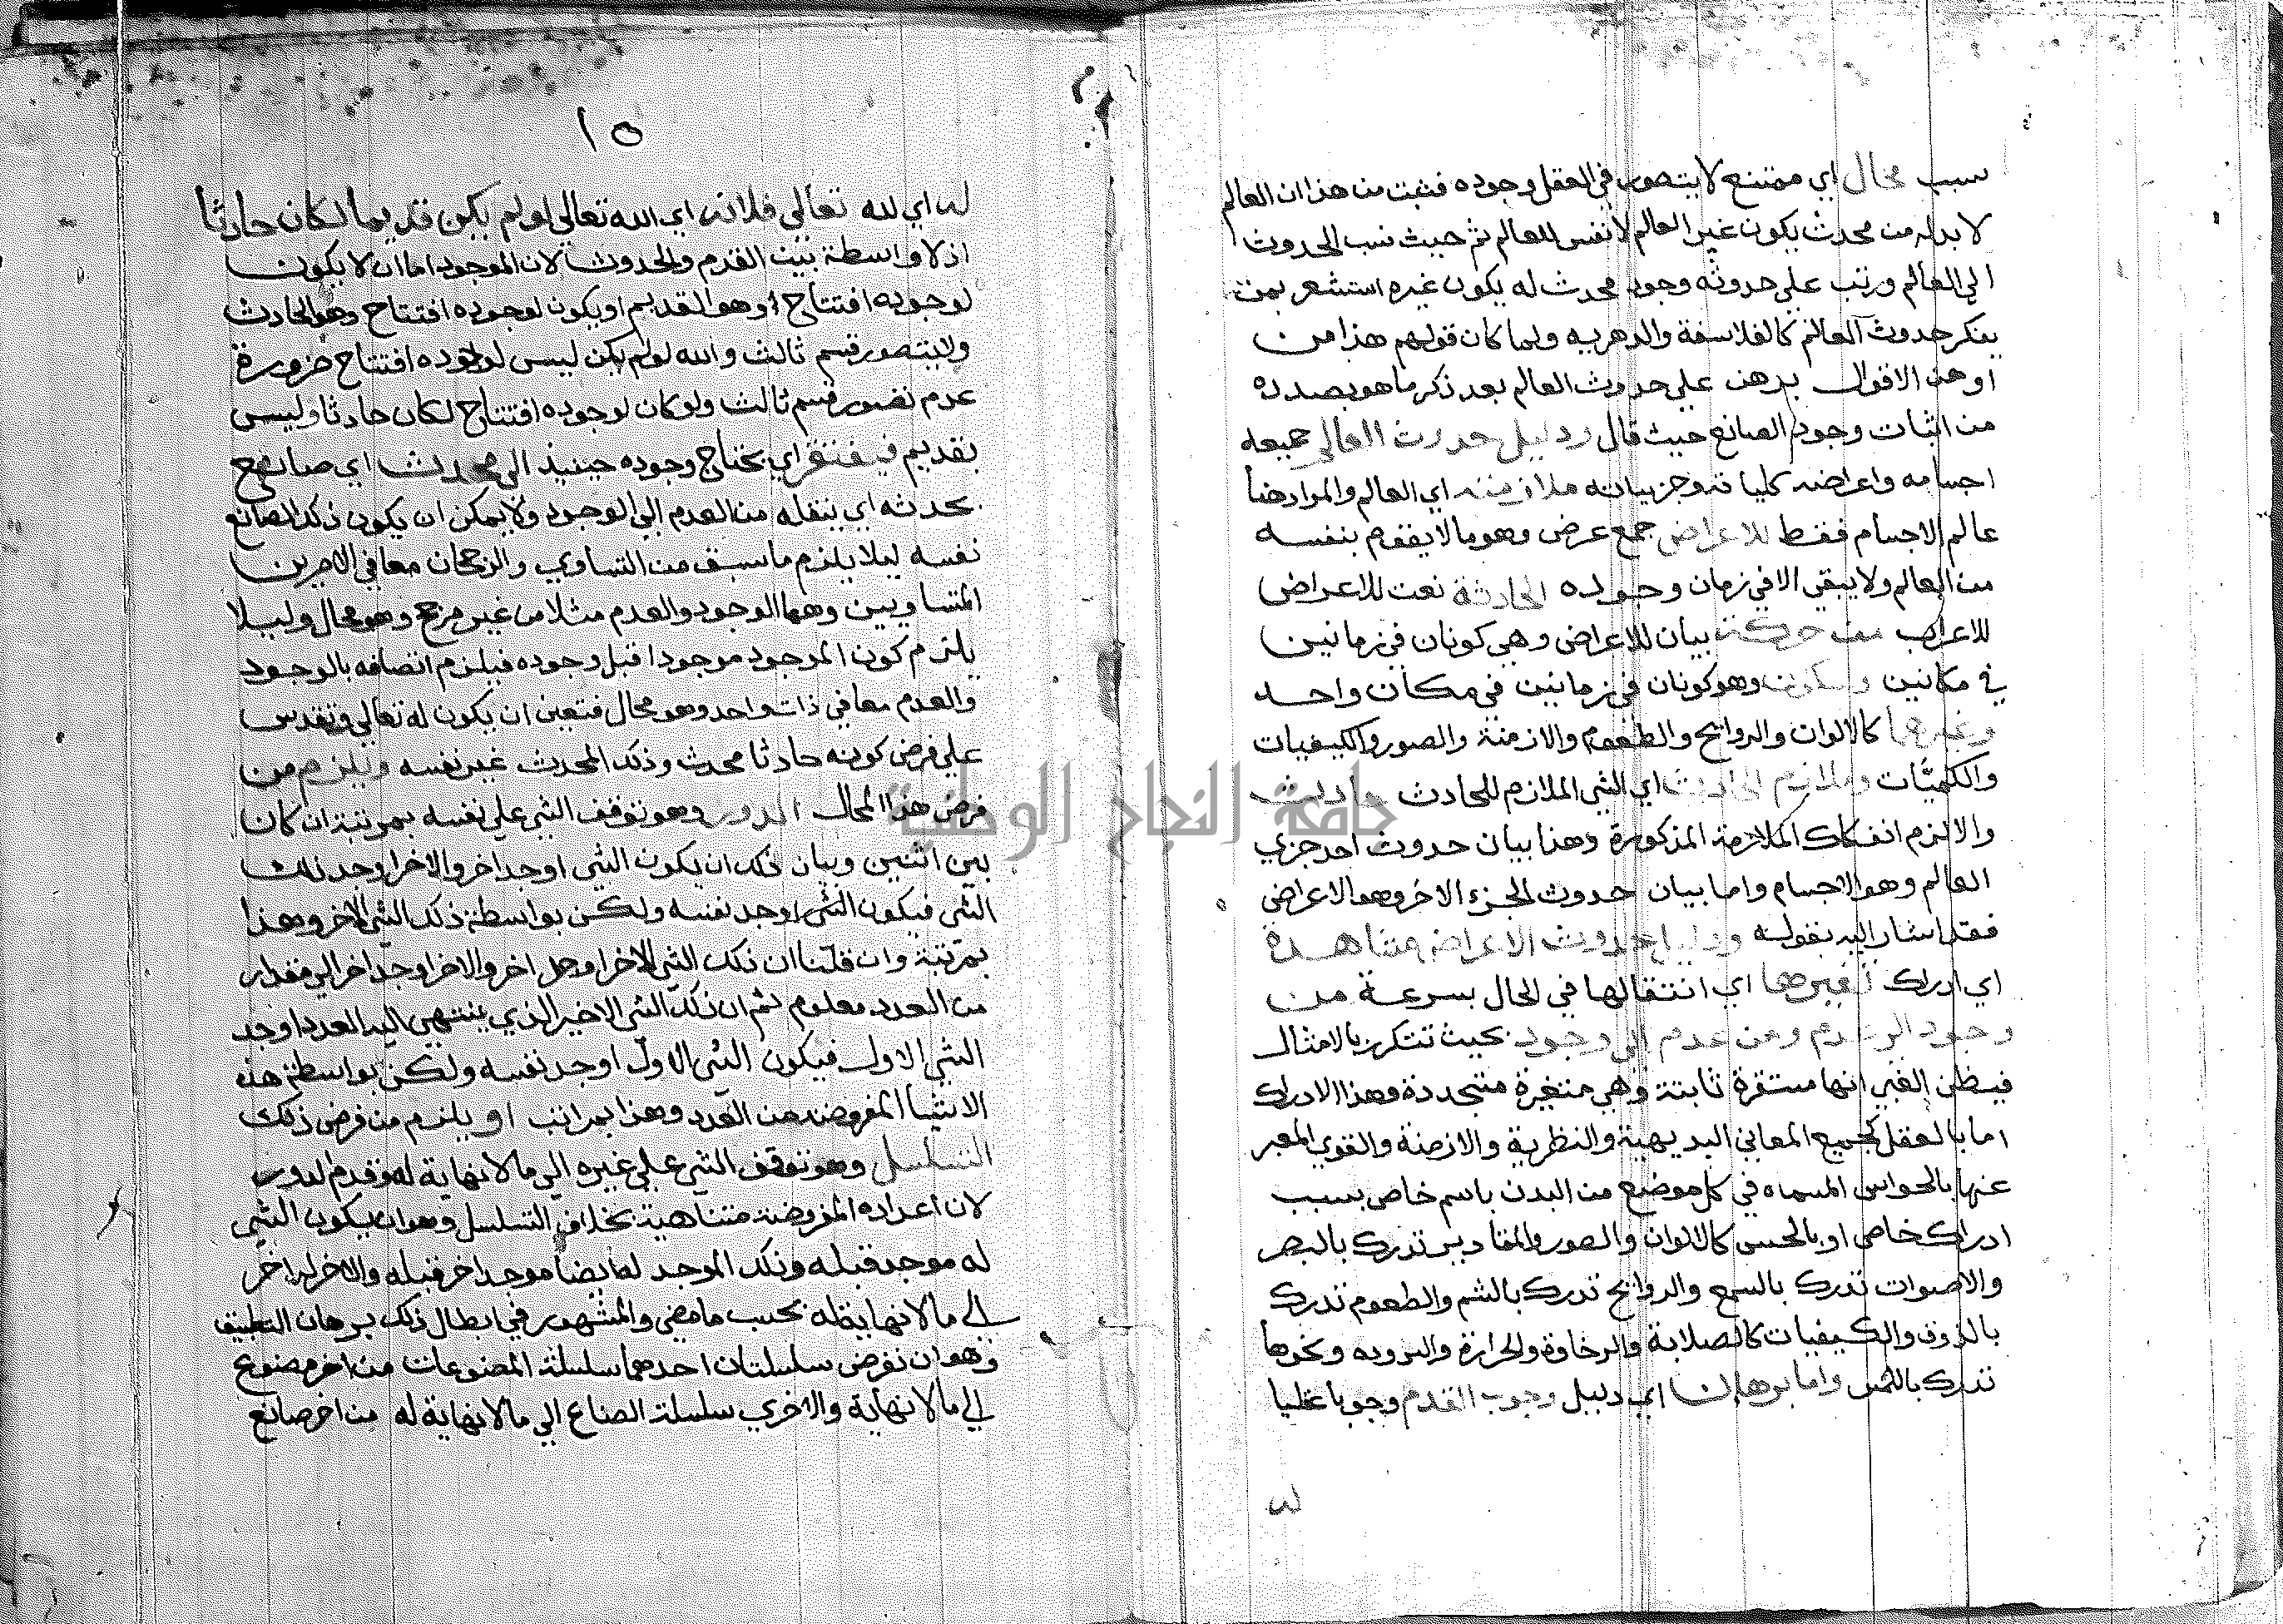 سبب محال اي ممتنع لا يتصور في العقل وجوده فثبت من هذا ان العالم
لا بد له من محدث يكون غير العالم لا نفس العالم ثم حيث نسب الحدوث
الي العالم ورتب علي حدوثه وجود محدث له يكون غيره استشعر بمن
ينكر حدوث العالم كالفلاسفة والدهريه ولما كان قولهم هذا من
اوهن الاقوال برهن علي حدوث العالم بعد ذكر ما هو بصدده
من اثبات وجود الصانع حيث قال ودليل حدوث العالم جميعه
اجسامه واعراضه كلياته وجزيياته ملازمته اي العالم والمراد هنا
عالم الاجسام فقط للاعراض جمع عرض وهو ما لا يقوم بنفسه
من العالم ولا يبقي الا في زمان وجوده الحادثة نعت للاعراض
للاعراض من حركة بيان للاعراض وهي كونان في زمانين
في مكانين وسكون وهو كونان في زمانين في مكان واحد
وغيرهما كالالوان والروايح والطعوم والازمنة والصور والكيفيات
والكميّات وملازم الحادث اي الشي الملازم للحادث حادث
والا لزم انفكاك الملازمة المذكورة وهذا بيان حدوث احد جزي
العالم وهو الاجسام واما بيان حدوث الجزء الاخر وهو الاعراض
فقد اشار اليه بقوله ودليل حدوث الاعراض مشاهدة
اي ادراك تغيرها اي انتقالها في الحال بسرعة من
وجود الي عدم ومن عدم الي وجود بحيث تتكرر بالامثال
فيظن الغبي انها مستقرة ثابتة وهي متغيرة متجددة وهذا الادراك
اما بالعقل كجميع المعاني البديهية والنظرية والازمنة والقوي المعبر
عنها بالحواس المسماه في كل موضع من البدن باسم خاص بسبب
ادراك خاص او بالحس كالالوان والصور والمقادير تدرك بالبصر
والاصوات تدرك بالسمع والروايح تدرك بالشم والطعوم تدرك
بالذوق والكيفيات كالصلابة والرخاوة والحرارة والبروده ونحوها
تدرك باللمس واما برهان اي دليل وجوب القدم وجوبا عقليا
له
١٥
له اي لله تعالي فلانه اي الله تعالي لو لم يكن قديما لكان حادثا
اذ لا واسطة بين القدم والحدوث لان الموجود اما ان لا يكون
لوجوده افتتاح وهو القديم او يكون لوجوده افتتاح وهو الحادث
ولا يتصور قسم ثالث والله لو لم يكن ليس لوجوده افتتاح ضرورة
عدم تصور قسم ثالث ولو كان لوجوده افتتاح لكان حادثا وليس
بقديم فيفتقر اي يحتاج وجوده حينيذ الي محدث اي صانع
يحدثه اي ينقله من العدم الي الوجود ولا يمكن ان يكون ذلك الصانع
نفسه ليلا يلزم ما سبق من التساوي والرجحان معا في الامرين
المتساويين وهما الوجود والعدم مثلا من غير مرجح وهو محال وليلا
يلزم كون الموجود موجودا قبل وجوده فيلزم اتصافه بالوجود
والعدم معا في ذات واحد وهو محال فتعين ان يكون له تعالي وتقدس
علي فرض كونه حادثا محدث وذلك المحدث غير نفسه ويلزم من
فرض هذا المحال الدور وهو توقف الشي علي نفسه بمرتبة ان كان
بين اثنين وبيان ذلك ان يكون الشي اوجد اخر والاخر اوجد ذلك
الشي فيكون الشي اوجد نفسه ولكن بواسطة ذلك الشي الاخر وهذا
بمرتبة وان قلنا ان ذلك الشي الاخر اوجد اخر والاخر اوجد اخر الي مقدار
من العدد معلوم ثم ان ذلك الشي الاخير الذي ينتهي اليه العدد اوجد
الشي الاول فيكون الشي الاول اوجد نفسه ولكن بواسطة هذه
الاشيا المفروضة من العدد وهذا بمراتب او يلزم من فرض ذلك
التسلسل وهو توقف الشي علي غيره الي ما لا نهاية له وقدم الدور
لان اعداده المفروضة متناهية بخلاف التسلسل وهو ان يكون الشي
له موجد قبله وذلك الموجد له ايضا موجد اخر قبله والاخر له اخر
الي ما لا نهاية له بحسب ما مضي والمشهور في ابطال ذلك برهان التطبيق
وهو ان نفرض سلسلتان احدهما سلسلة المصنوعات من اخر مصنوع
الي ما لا نهاية والاخري سلسلة الصناع الي ما لا نهاية له من اخر صانع
جامعة النجاح الوطنية